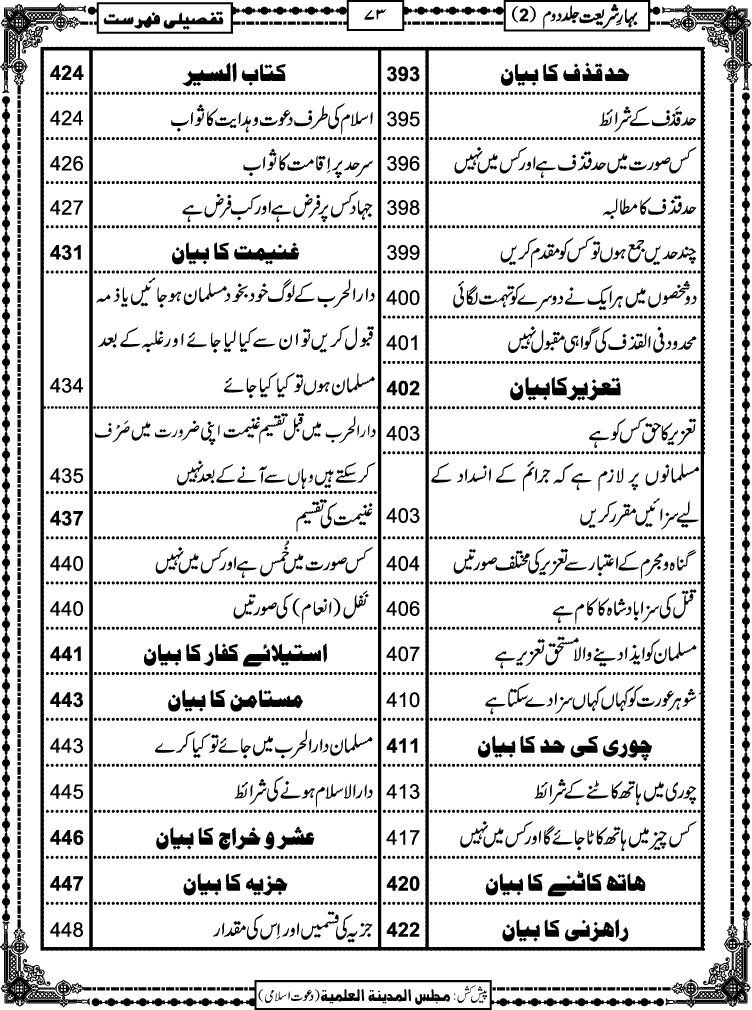 بہارِ شریعت جلد دوم (2)
۷۳
تفصیلی فہرست
حد قذف کا بیان 393
حد قَذف کے شرائط 395
کس صورت میں حد قذف ہے اور کس میں نہیں 396
حد قذف کا مطالبہ 398
چند حدیں جمع ہوں تو کس کو مقدم کریں 399
دو شخصوں میں ہر ایک نے دوسرے کو تہمت لگائی 400
محدود فی القذف کی گواہی مقبول نہیں 401
تعزیر کا بیان 402
تعزیر کا حق کس کو ہے 403
مسلمانوں پر لازم ہے کہ جرائم کے انسداد کے
لیے سزائیں مقرر کریں 403
گناہ و مجرم کے اعتبار سے تعزیر کی مختلف صورتیں 404
قتل کی سزا بادشاہ کا کام ہے 406
مسلمان کو ایذا دینے والا مستحق تعزیر ہے 407
شوہر عورت کو کہاں کہاں سزا دے سکتا ہے 410
چوری کی حد کا بیان 411
چوری میں ہاتھ کاٹنے کے شرائط 413
کس چیز میں ہاتھ کاٹا جائے گا اور کس میں نہیں 417
ہاتھ کاٹنے کا بیان 420
راہزنی کا بیان 422
کتاب السیر 424
اسلام کی طرف دعوت و ہدایت کا ثواب 424
سرحد پر اِقامت کا ثواب 426
جہاد کس پر فرض ہے اور کب فرض ہے 427
غنیمت کا بیان 431
دارالحرب کے لوگ خود بخود مسلمان ہو جائیں یا ذمہ
قبول کریں تو ان سے کیا لیا جائے اور غلبہ کے بعد
مسلمان ہوں تو کیا کیا جائے 434
دارالحرب میں قبل تقسیم غنیمت اپنی ضرورت میں صَرْف
کر سکتے ہیں وہاں سے آنے کے بعد نہیں 435
غنیمت کی تقسیم 437
کس صورت میں خُمس ہے اور کس میں نہیں 440
نَفل (انعام) کی صورتیں 440
استیلائے کفار کا بیان 441
مستامن کا بیان 443
مسلمان دارالحرب میں جائے تو کیا کرے 443
دارالاسلام ہونے کی شرائط 445
عشر و خراج کا بیان 446
جزیہ کا بیان 447
جزیہ کی قسمیں اور اِس کی مقدار 448
پیش کش: مجلس المدینة العلمیة (دعوت اسلامی)